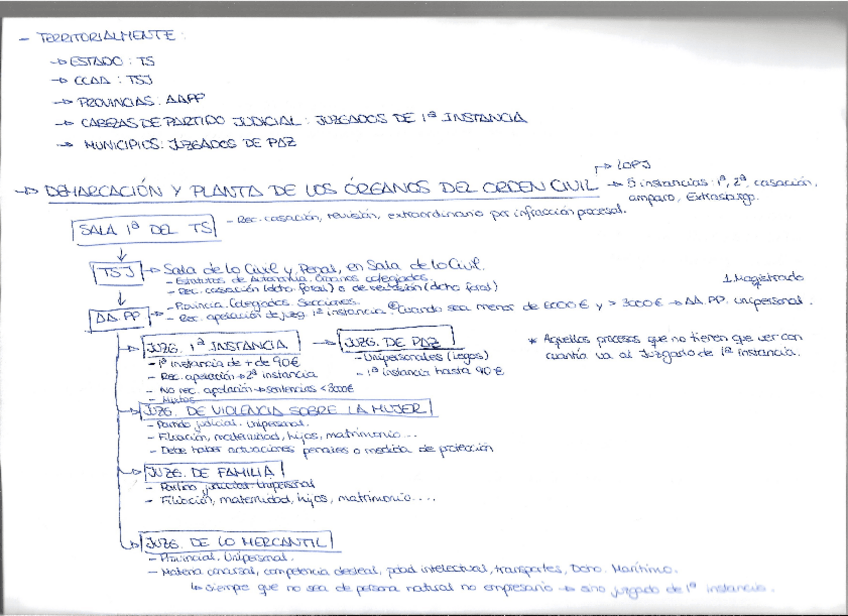 - TERRITORIALMENTE:
→ ESTADO: TS
→ CCAA: TSJ
→ PROVINCIAS: AAPP
→ CABEZAS DE PARTIDO JUDICIAL: JUZGADOS DE 1ª INSTANCIA
→ MUNICIPIOS: JUZGADOS DE PAZ
→ LOPJ
→ DEMARCACIÓN Y PLANTA DE LOS ÓRGANOS DEL ORDEN CIVIL → 5 instancias: 1ª, 2ª, casación,
amparo,
SALA 1ª DEL TS - Rec. casación, revisión, extraordinario por infracción procesal.
TSJ → Sala de lo Civil y Penal, en Sala de lo Civil.
- Estatutos de Autonomía. Órganos colegiados.
- Rec. casación (dcho foral) o de revisión (dcho foral)
1 Magistrado
AA.PP → - Provincia. Colegiados. Secciones.
- Rec. apelación de juzg. 1ª instancia * Cuando sea menor de 6000€ y > 3000€ → AA.PP. unipersonal.
JUZG. 1ª INSTANCIA → JUZG. DE PAZ
- 1ª instancia de + de 90€
- Rec. apelación → 2ª instancia
- No rec. apelación → sentencias < 3000€
- Mixtos
- Unipersonales (Legos)
- 1ª instancia hasta 90€
* Aquellos procesos que no tienen que ver con
cuantía va al Juzgado de 1ª instancia.
JUZG. DE VIOLENCIA SOBRE LA MUJER
- Partido judicial. Unipersonal.
- Filiación, maternidad, hijos, matrimonio...
- Debe haber actuaciones penales o medida de protección
JUZG. DE FAMILIA
- Partido judicial. Unipersonal
- Filiación, maternidad, hijos, matrimonio....
JUZG. DE LO MERCANTIL
- Provincial. Unipersonal.
- Materia concursal, competencia desleal, pdad intelectual, transportes, Dcho. Marítimo.
↳ siempre que no sea de persona natural no empresario → sino juzgado de 1ª instancia.